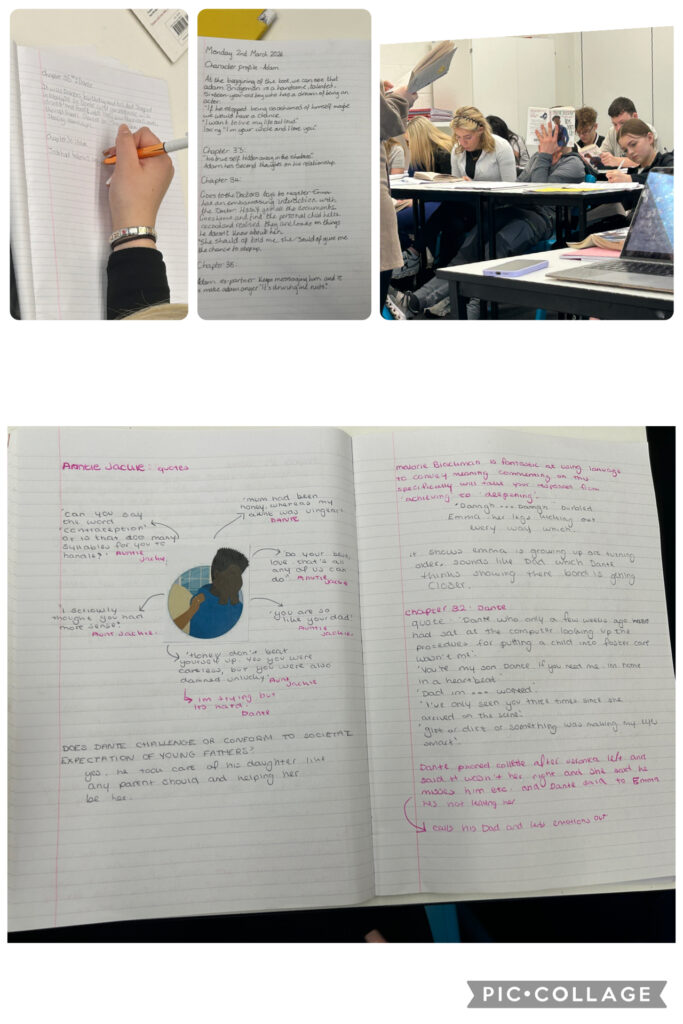 Monday 2nd March 2026
Character profile - Adam
At the beggining of the book we can see that
adam Bridgeman is a handsome, talented,
Sixteen-year-old boy who has a dream of being an
actor.
"If he stopped being so ashamed of himself maybe
we would have a chance.
"I want to live my life out loud"
loving "I'm your uncle and I love you"
Chapter 33:
"his true self hidden away in the shadows"
Adam has Second thoughts on his relationship.
Chapter 34:
Goes to the Doctors Days to register Emma
had an embarrassing interaction with
the Doctor.
Goes home and find the personal child helth
record and realised they are loads on things
he doesn't know about her.
"She should of told me, she should of give me
the chance to
Chapter 36:
Adam ex-partner keeps messaging him and it
make adam anger "It's driving me nuts".
Auntie Jackie: quotes
'can you say
the word
'contraception'
or is that too many
syllables for you to
handle?' Auntie
Jackie
'mum had been
honey, whereas my
aunt was vinger'.
DANTE
'Do your best,
love. that's all
any of us can
do'. Auntie
Jackie
'I seriously
thought you had
more sense'
Aunt Jackie.
'you are so
like your dad'
Auntie
Jackie
'Honey don't beat
yourself up. Yes you were
careless, but you were also
damned unlucky' Aunt
Jackie
im trying but
its hard.
Dante
DOES DANTE CHALLENGE OR CONFORM TO SOCIETAL
EXPECTATION OF YOUNG FATHERS?
yes, he took care of his daughter like
any parent should and helping her
be her.
malorie Blackman is fantastic at using language
to convey meaning commenting on this
specifically will take your responses from
'achieving to deepening'.
'Danagh ... Damgh' burbled
Emma, her legs kicking out
every way which.
it shows emma is growing up and turning
older. sounds like Dad which Dante
thinks showing there bond is getting
closer.
chapter 32: Dante
quote: 'Dante who only a few weeks ago
had sat at the computer looking up the
procedures for putting a child into foster care
wasn't me'.
'You're my son Dante. If you need me, im home
in a heartbeat'.
'Dad, im ... worried.'
'I've only seen you three times since she
arrived on the scene'.
'girt or dirt or something was making my eyes
smart'.
Dante phoned collette after veronica left and
said it wasn't her right and she said he
misses him etc. and Dante said to Emma
he's not leaving her
calls his Dad and lets emotions out
PIC•COLLAGE